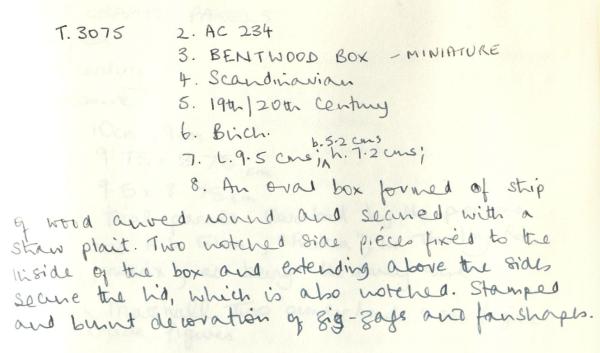 T.3075 2. AC 234
3. BENTWOOD BOX - MINIATURE
4. Scandinavian
5. 19th/20th Century
6. Birch.
7. L. 9.5 cms; b. 5.2 cms h. 7.2 cms;
8. An oval box formed of strip
of wood curved round and secured with a
straw plait. Two notched side pieces fixed to the
inside of the box and extending above the sides
secure the lid, which is also notched. Stamped
and burnt decoration of zig-zags and fanshapes.